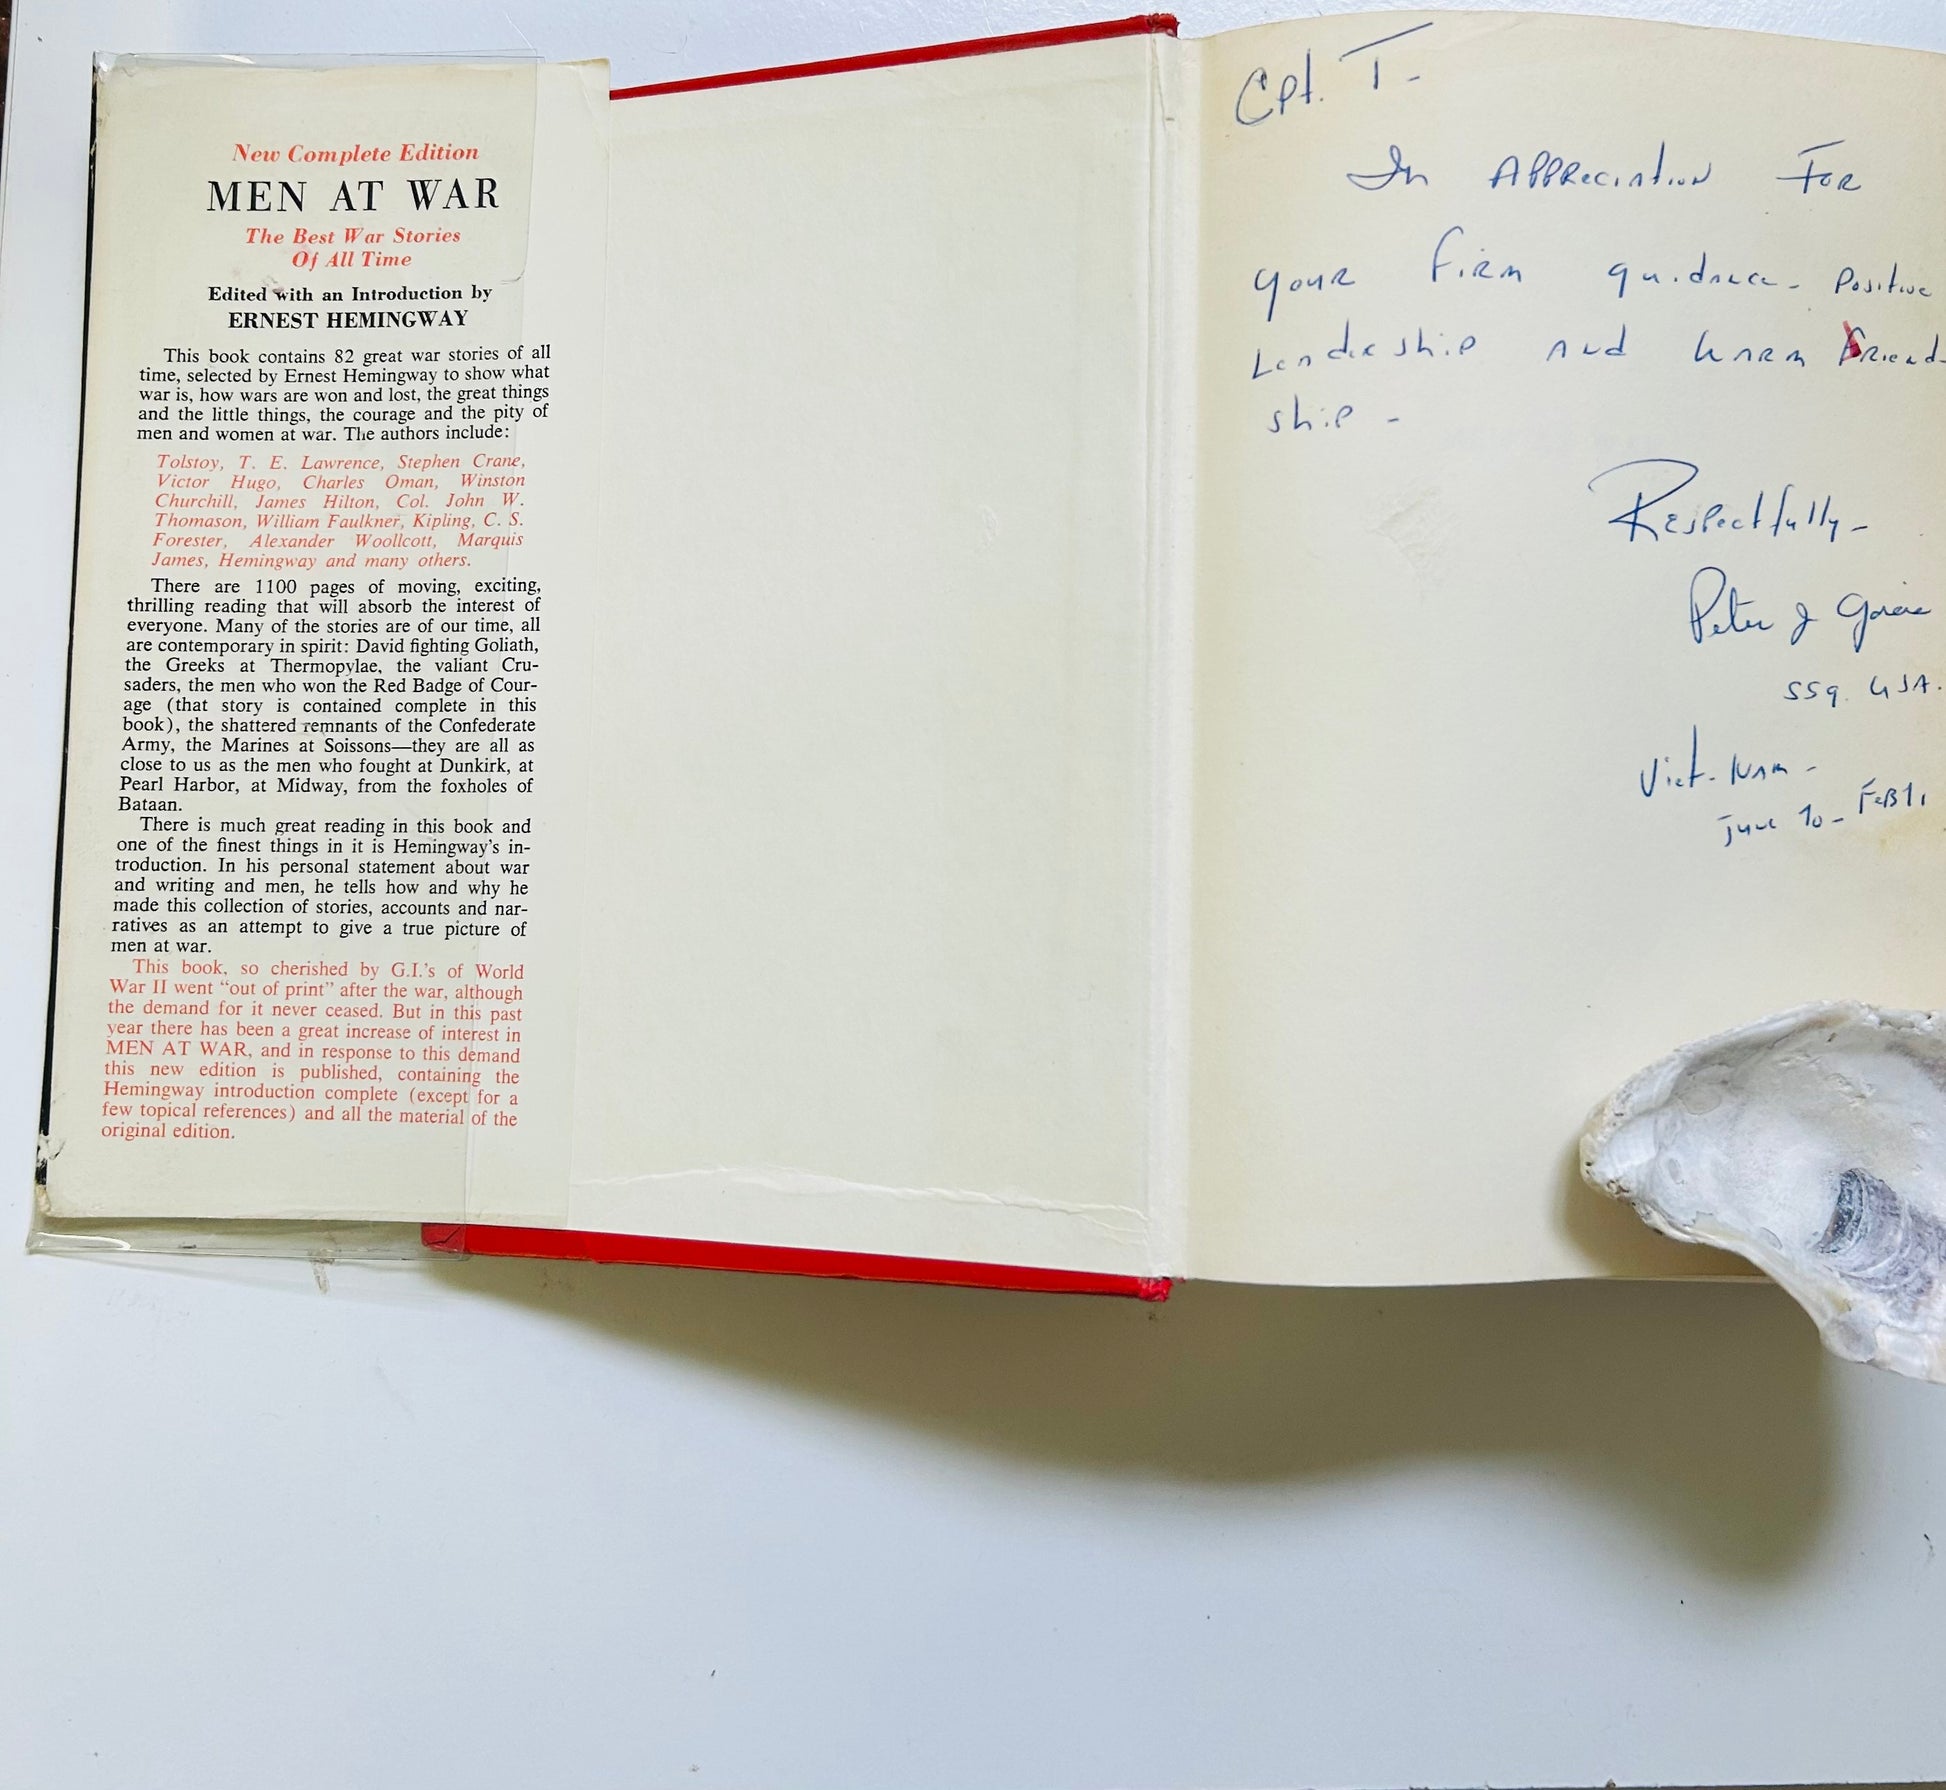 New Complete Edition
MEN AT WAR
The Best War Stories
Of All Time
Edited with an Introduction by
ERNEST HEMINGWAY
This book contains 82 great war stories of all
time, selected by Ernest Hemingway to show what
war is, how wars are won and lost, the great things
and the little things, the courage and the pity of
men and women at war. The authors include:
Tolstoy, T. E. Lawrence, Stephen Crane,
Victor Hugo, Charles Oman, Winston
Churchill, James Hilton, Col. John W.
Thomason, William Faulkner, Kipling, C. S.
Forester, Alexander Woollcott, Marquis
James, Hemingway and many others.
There are 1100 pages of moving, exciting,
thrilling reading that will absorb the interest of
everyone. Many of the stories are of our time, all
are contemporary in spirit: David fighting Goliath,
the Greeks at Thermopylae, the valiant Cru-
saders, the men who won the Red Badge of Cour-
age (that story is contained complete in this
book), the shattered remnants of the Confederate
Army, the Marines at Soissons—they are all as
close to us as the men who fought at Dunkirk, at
Pearl Harbor, at Midway, from the foxholes of
Bataan.
There is much great reading in this book and
one of the finest things in it is Hemingway's in-
troduction. In his personal statement about war
and writing and men, he tells how and why he
made this collection of stories, accounts and nar-
ratives as an attempt to give a true picture of
men at war.
This book, so cherished by G.I.'s of World
War II went "out of print" after the war, although
the demand for it never ceased. But in this past
year there has been a great increase of interest in
MEN AT WAR, and in response to this demand
this new edition is published, containing the
Hemingway introduction complete (except for a
few topical references) and all the material of the
original edition.
Cpt. T-
In Appreciation For
your firm guidance- Positive
Leadership and warm Friend-
ship -
Respectfully-
Peter J
SSg. USA.
Viet-Nam-
June 70- Feb 71